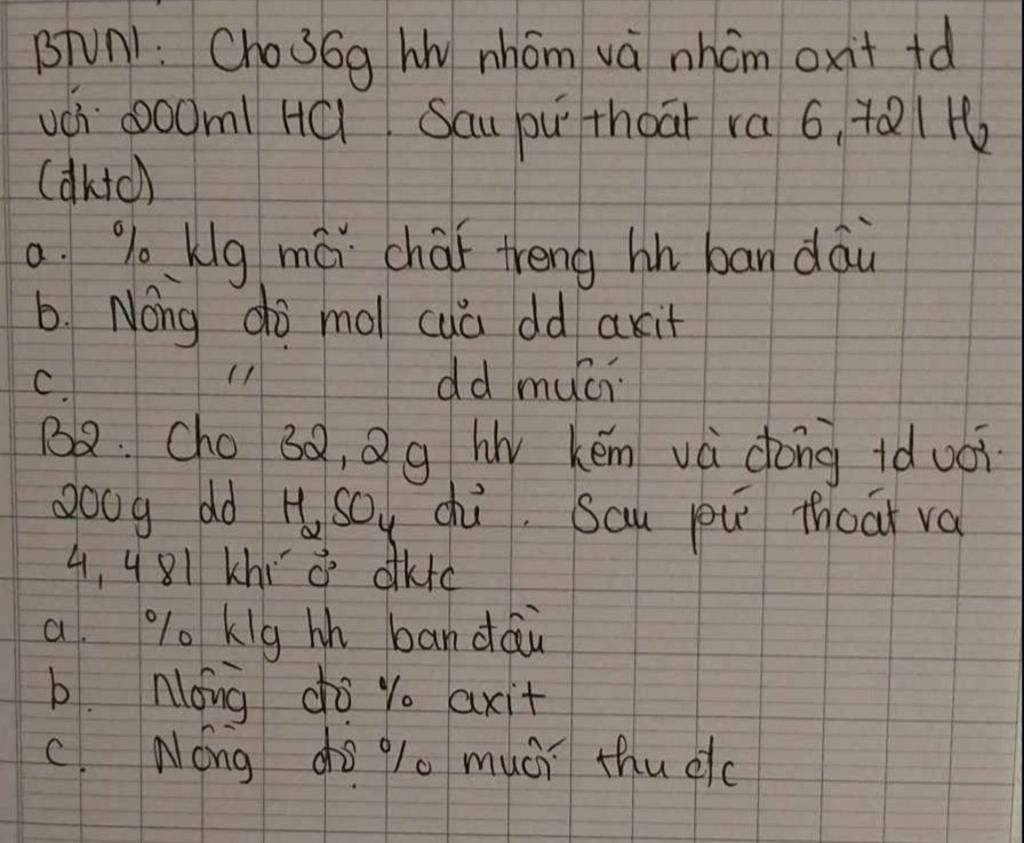 BTVN1: Cho 36g hh nhôm và nhôm oxit td
với 200ml HCl. Sau pứ thoát ra 6,72l H₂
(đktc)
a. % klg mỗi chất trong hh ban đầu
b. Nồng độ mol của dd axit
c. " dd muối
B2: Cho 32,2g hh kẽm và đồng td với
200g dd H₂SO₄ đủ. Sau pứ thoát ra
4,48l khí ở đktc
a. % klg hh ban đầu
b. Nồng độ % axit
c. Nồng độ % muối thu đc